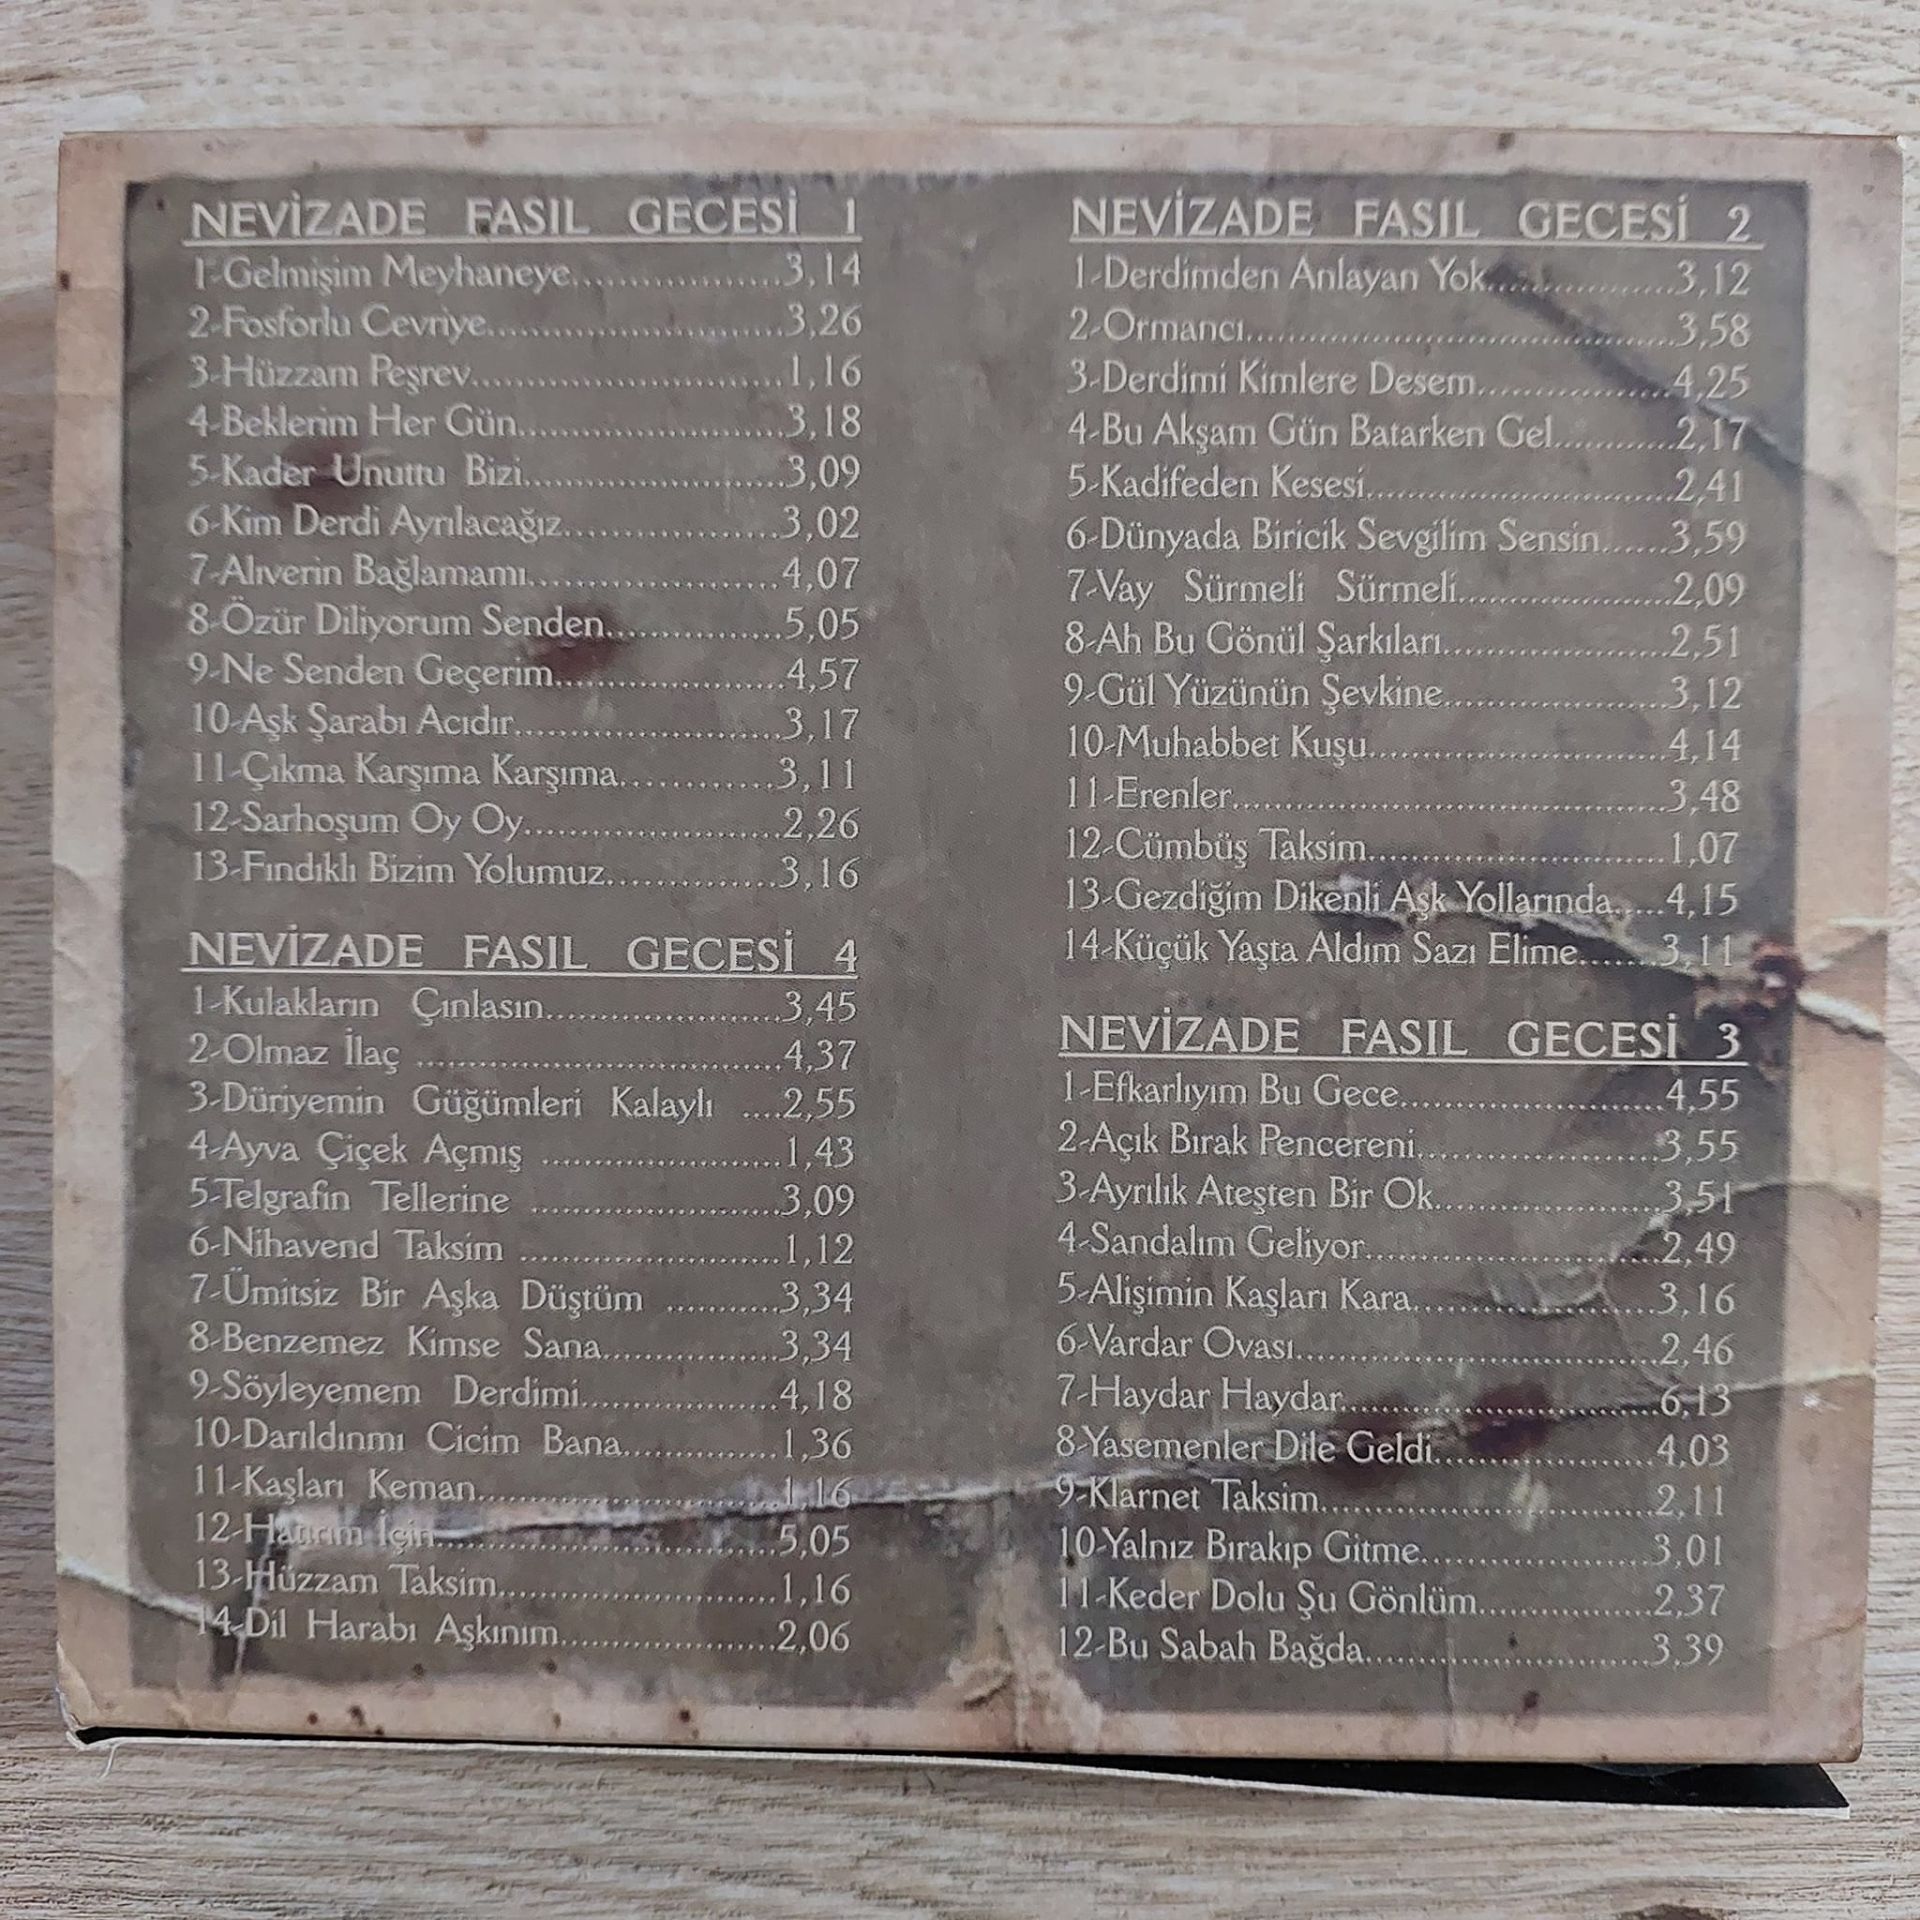 NEVİZADE FASIL GECESİ 1
1-Gelmişim Meyhaneye..................3,14
2-Fosforlu Cevriye..........................3,26
3-Hüzzam Peşrev...........................1,16
4-Beklerim Her Gün.......................3,18
5-Kader Unuttu Bizi.......................3,09
6-Kim Derdi Ayrılacağız..................3,02
7-Alıverin Bağlamamı......................4,07
8-Özür Diliyorum Senden...............5,05
9-Ne Senden Geçerim....................4,57
10-Aşk Şarabı Acıdır.......................3,17
11-Çıkma Karşıma Karşıma............3,11
12-Sarhoşum Oy Oy......................2,26
13-Fındıklı Bizim Yolumuz..............3,16
NEVİZADE FASIL GECESİ 4
1-Kulakların Çınlasın.....................3,45
2-Olmaz İlaç ................................4,37
3-Düriyemin Güğümleri Kalaylı ....2,55
4-Ayva Çiçek Açmış .....................1,43
5-Telgrafın Tellerine ......................3,09
6-Nihavend Taksim .......................1,12
7-Ümitsiz Bir Aşka Düştüm ..........3,34
8-Benzemez Kimse Sana...............3,34
9-Söyleyemem Derdimi.................4,18
10-Darıldınmı Cicim Bana.............1,36
11-Kaşları Keman..........................1,16
12-Hatırım İçin..............................5,05
13-Hüzzam Taksim........................1,16
14-Dil Harabı Aşkınım...................2,06
NEVİZADE FASIL GECESİ 2
1-Derdimden Anlayan Yok................3,12
2-Ormancı......................................3,58
3-Derdimi Kimlere Desem.................4,25
4-Bu Akşam Gün Batarken Gel..........2,17
5-Kadifeden Kesesi...........................2,41
6-Dünyada Biricik Sevgilim Sensin......3,59
7-Vay Sürmeli Sürmeli...................2,09
8-Ah Bu Gönül Şarkıları....................2,51
9-Gül Yüzünün Şevkine...................3,12
10-Muhabbet Kuşu..........................4,14
11-Erenler......................................3,48
12-Cümbüş Taksim..........................1,07
13-Gezdiğim Dikenli Aşk Yollarında.....4,15
14-Küçük Yaşta Aldım Sazı Elime.......3,11
NEVİZADE FASIL GECESİ 3
1-Efkarlıyım Bu Gece.......................4,55
2-Açık Bırak Pencereni.....................3,55
3-Ayrılık Ateşten Bir Ok....................3,51
4-Sandalım Geliyor..........................2,49
5-Alişimin Kaşları Kara.....................3,16
6-Vardar Ovası................................2,46
7-Haydar Haydar............................6,13
8-Yasemenler Dile Geldi...................4,03
9-Klarnet Taksim.............................2,11
10-Yalnız Bırakıp Gitme....................3,01
11-Keder Dolu Şu Gönlüm...............2,37
12-Bu Sabah Bağda.........................3,39